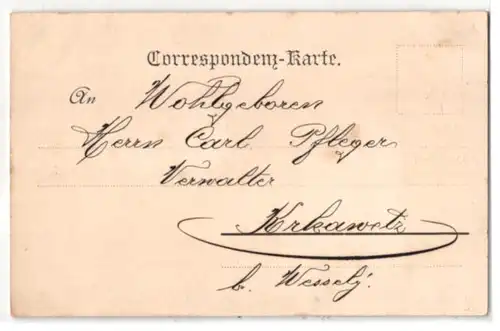 Correspondenz-Karte.
An Wohlgeboren
Herrn Carl Pfleger
Verwalter
Krkawetz
b. Wessely.